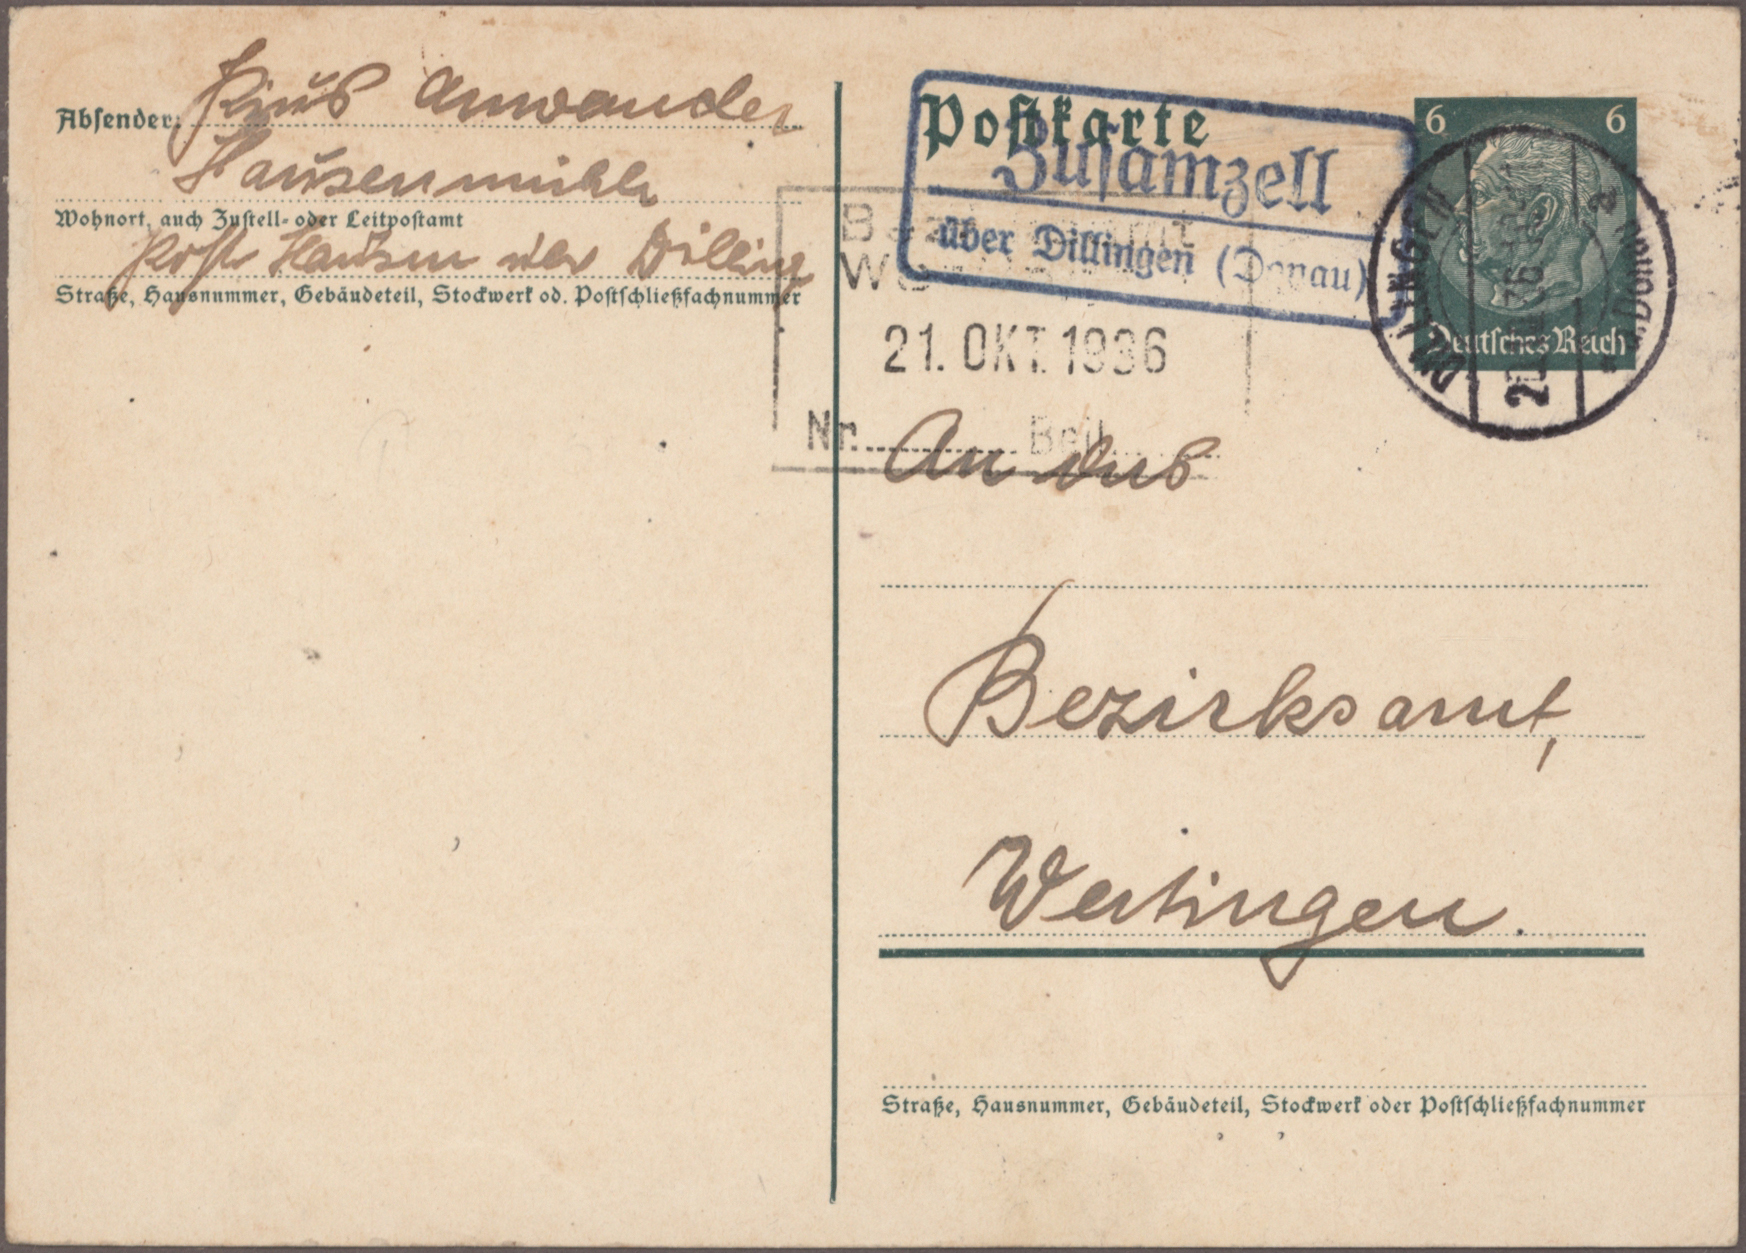 Absender: Pius Anwander
Hausenmühle
Wohnort, auch Zustell- oder Leitpostamt
Post Hausen über Dilling
Straße, Hausnummer, Gebäudeteil, Stockwerk od. Postschließfachnummer
Postkarte
Zusamzell
über Dillingen (Donau)
6 6
Deutsches Reich
DILLINGEN
a. Donau
21.
36
a
21. OKT. 1936
Nr. Beil.
An das
Bezirksamt,
Wertingen.
Straße, Hausnummer, Gebäudeteil, Stockwerk oder Postschließfachnummer